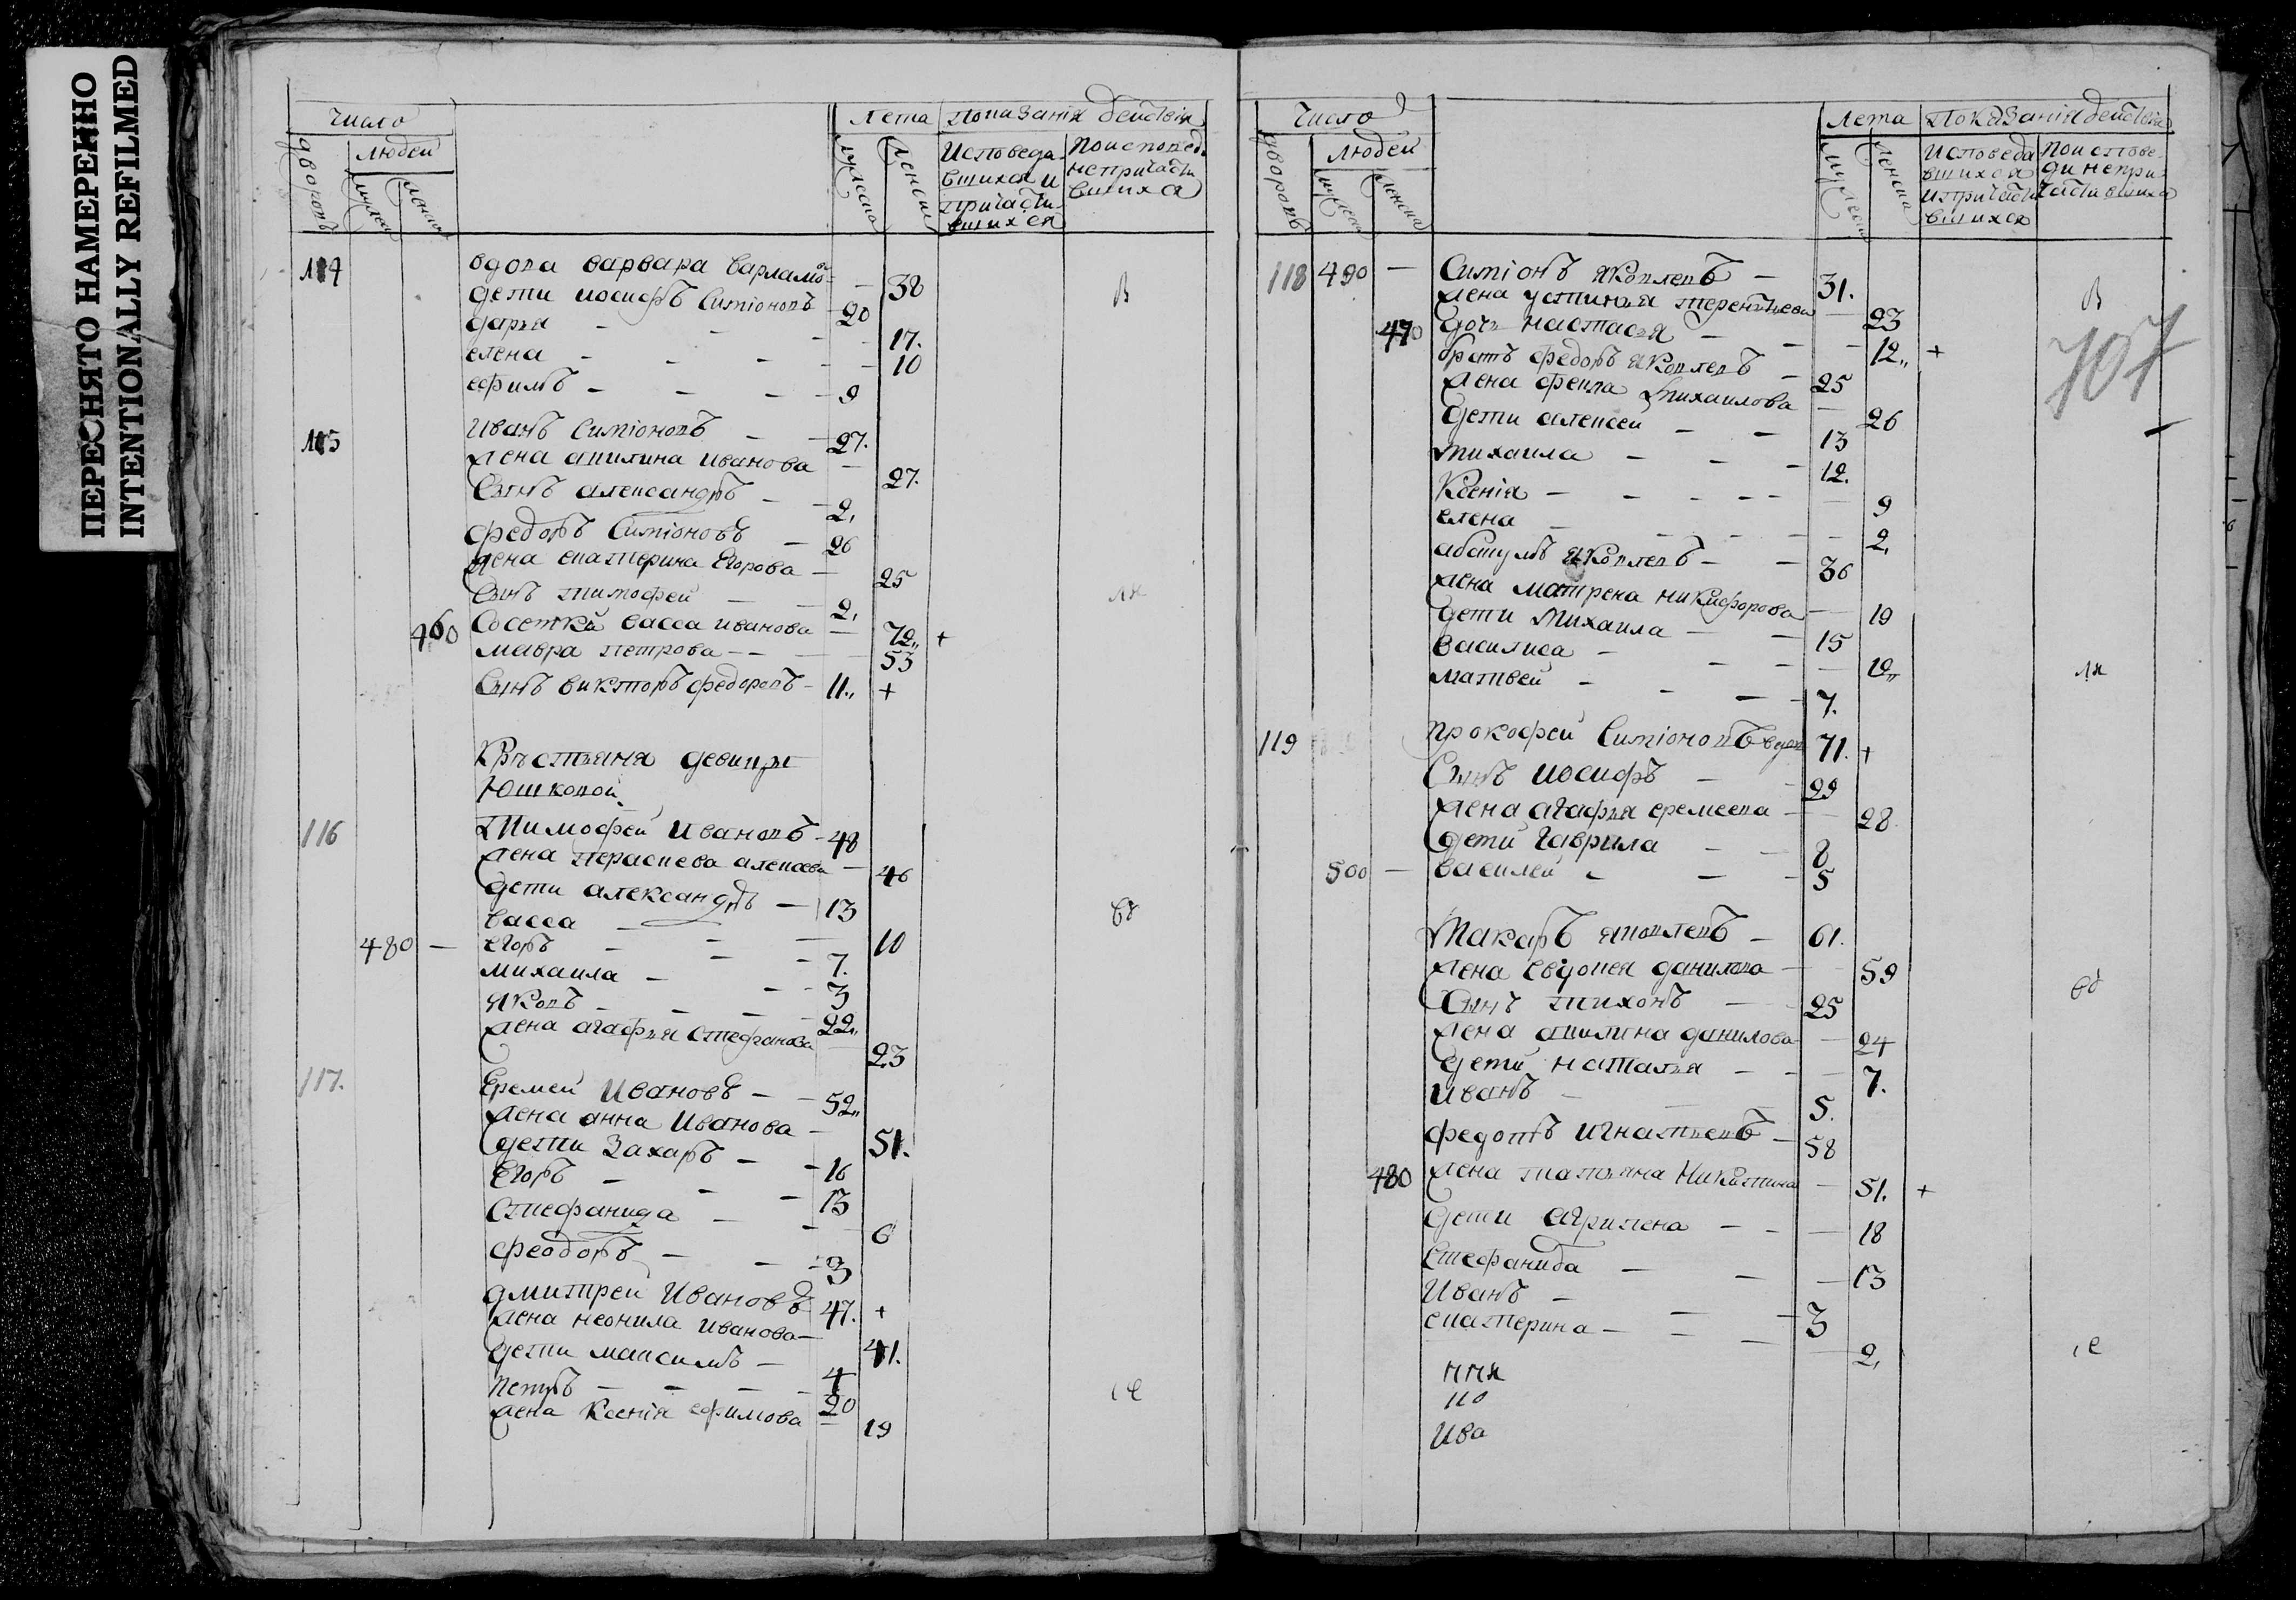 ПЕРЕСНЯТО НАМЕРЕННО
INTENTIONALLY REFILMED
число
лета показания действия
дворовъ
людей
мужеска
женска
мужеска
женска
исповеда
вшихся и
причасти
вшихся
по исповед
непричасти
вшихся
114 вдова варвара варламо 38 в
дети иосифъ симионовъ 20
дарья 17.
елена 10
ефимъ 9
115 иванъ симионовъ 27.
жена акилина иванова 27.
сынъ александръ 2,
федоръ симионовъ 26
жена екатерина егорова 25
сынъ тимофей 2, ля
460 васса иванова 72,, +
мавра петрова 53
сынъ викторъ федоровъ 11,, +
крестьяня девицы
Юшковой
116 тимофей ивановъ 48
жена параскева алексеева 46
дети александръ 13
васса 10
480 егоръ 7.
михаила 3
яковъ 22,,
жена агафья стефанова 23
117. еремей ивановъ 52,,
жена анна иванова 51.
дети захаръ 16
егоръ 13
стефанида 6
феодоръ 3
дмитрей ивановъ 47. +
жена неонила иванова 41.
дети максимъ 4
петръ 20
жена ксения ефимова 19
се
число
лета показания действия
дворовъ
людей
мужеска
женска
мужеска
женска
исповеда
вшихся
и причасти
вшихся
по испове
ди непри
частившихся
118 490 симионъ яковлевъ 31. в
жена устинья терентьева 23
470 дочь настасья 12,, +
707
братъ федоръ яковлевъ 25
жена фекла михаилова 26
дети алексей 13
михаила 12.
ксения 9
елена 2,
яковлевъ 36
жена матрена никифорова 19
дети михаила 15
василиса 10,,
матвей 7. ля
119 прокофей симионовъ вдовъ 71. +
сынъ иосифъ 29
жена агафья еремеева 28
дети гаврила 8
500 василей 5
макаръ яковлевъ 61.
жена евдокея данилова 59
сынъ тихонъ 25
жена акилина данилова 24
дети наталья 7.
иванъ 5.
федотъ игнатьевъ 58
480 жена татьяна никитина 51. +
дети агрипена 18
стефанида 13
иванъ 3
екатерина 2,
се
ння
но
ива